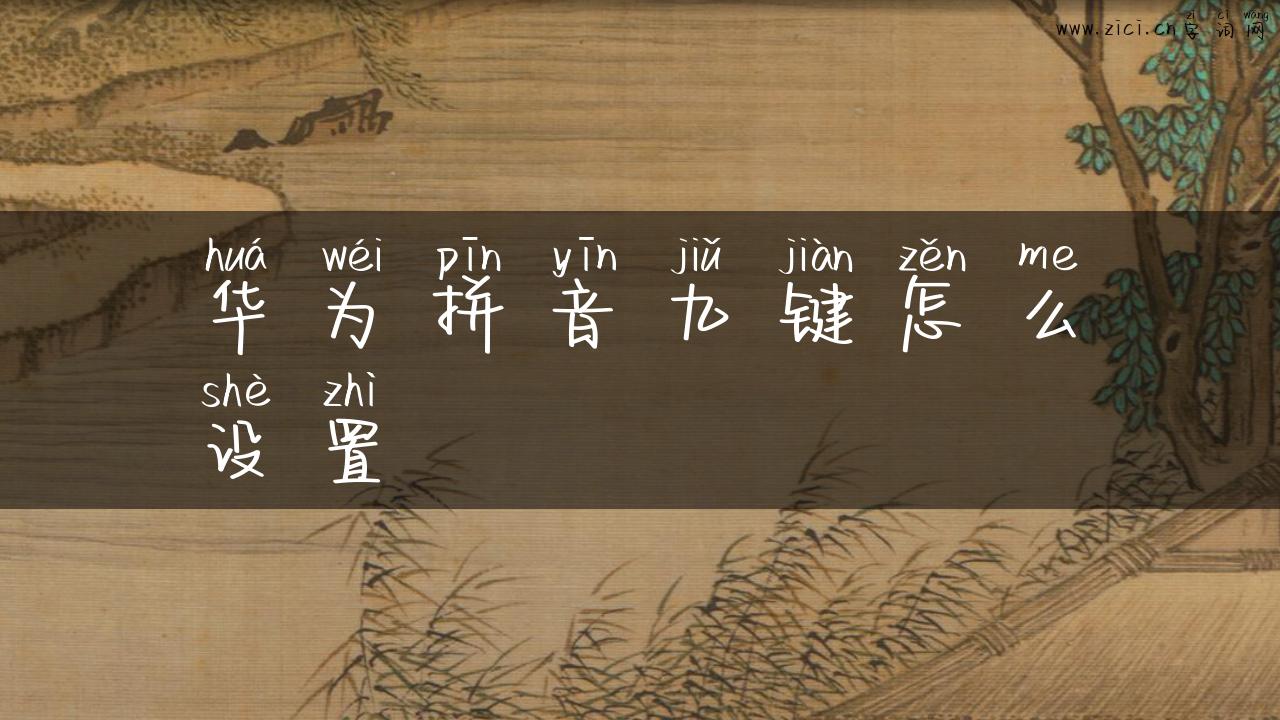 zì cí wǎng
www.zici.cn字词网
huá wéi pīn yīn jiǔ jiàn zěn me
华为拼音九键怎么
shè zhì
设置